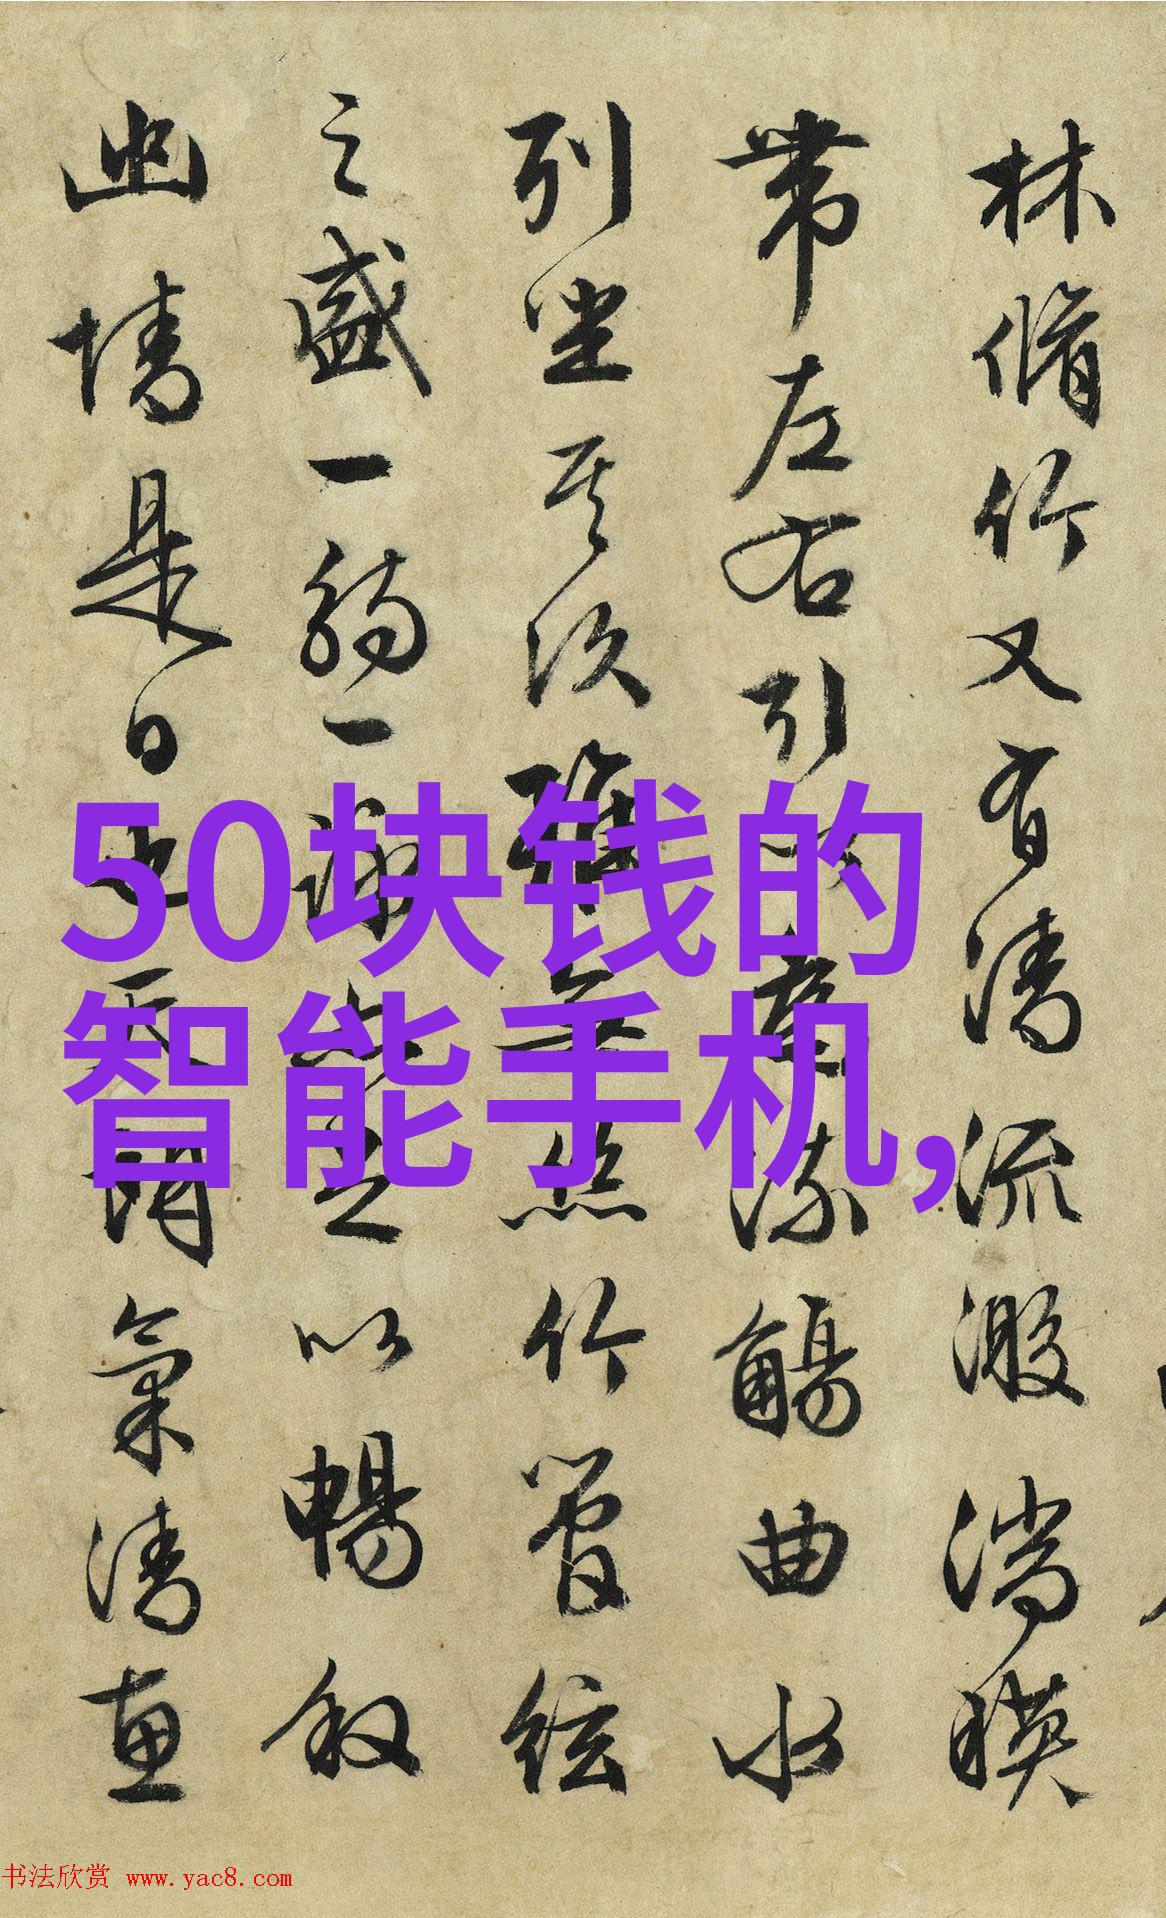 林脩竹又有清流激湍暎
帶左右引以為流觴曲水
列坐其次雖無絲竹管絃
之盛一觴一詠亦足以暢叙
幽情是日也天朗氣清惠
50块钱的
智能手机,
书法欣赏 www.yac8.com